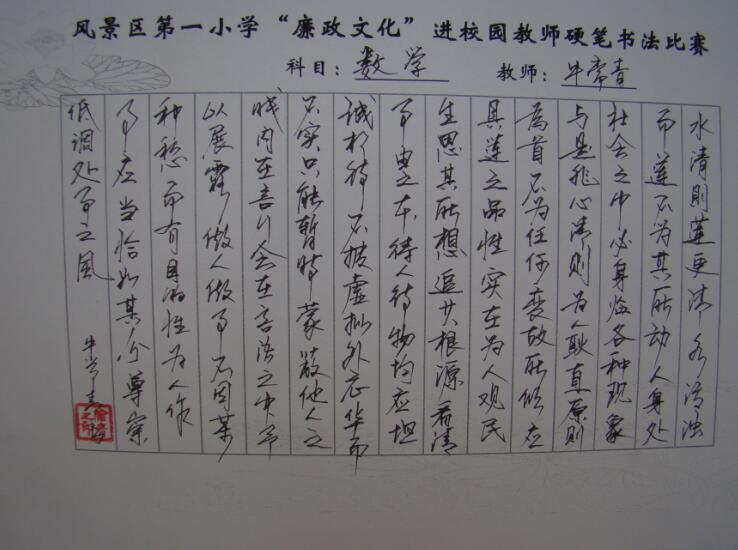 风景区第一小学“廉政文化”进校园教师硬笔书法比赛
科目：数学 教师：牛常青
水清则莲更清水污浊
而莲不为其所动人身处
社会之中必身临各种现象
与是非心清则为人耿直原则
为首不为任何变故所倾应
具莲之品性实在为人观民
生思其所想追其根源看清
事由之本待人待物均应坦
诚相待不披虚拟外衣华而
不实只能暂时蒙蔽他人之
眼内在善行会在言语之中予
以展露做人做事不因某
种愁而有目的性为人作
事应当恰如其分尊崇
低调处事之风
牛常青